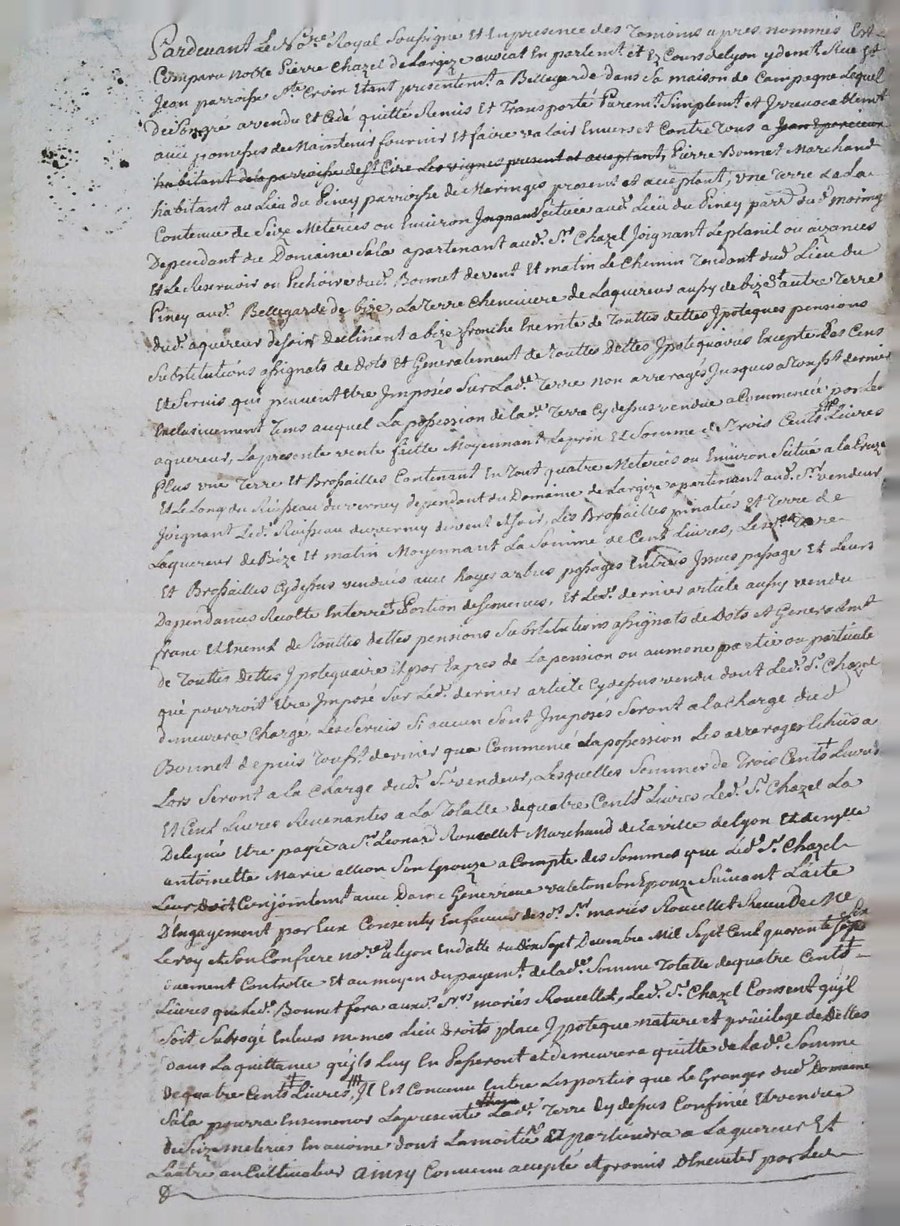 Pardevant Le No.re Royal Soussigné Et En presence des Temoins apres nommés Est
Comparu noble Pierre Chazel de Largeze avocat En parlemt. et Ez Cours de Lyon y demt. Rue Et
Jean parroisse Ste Croix Etant presentemt. a Bellegarde dans Sa maison de Campagne Lequel
de Son gré a vendu Et Cedé quitté Remis Et Transporté Puremt. Simplemt. et Irrevocablemt
avec promesses de Maintenir fournir Et faire valoir Envers et Contre Tous a Jean
habitant de la parroisse de St. Cire Les vignes present et acceptant, Pierre Bonnet Marchand
habitant au Lieu du Piney parroisse de Maringes present et acceptant, une Terre de La
Contenue de Seize Meteries ou Environ Joignant Scituée aud. Lieu du Piney parr. dud.
Dependant du Domaine Sala apartenant aud. Sr. Chazel Joignant Le planil ou avances
Et Le Reservoir ou Pechoire dud. Bonnet de vent Et matin Le Chemin Tendant dud. Lieu du
Piney aud. Bellegarde de bize, La Terre Cheneviere de Laquereur aussy de bize et autre Terre
dud. aquereur de Soir Declinent a bize, franche Exemte de Touttes dettes Ypoteques pensions
Substitutions assignats de Dots Et Generalement de Touttes Dettes Ypotequaires Excepté Des Cens
Et Servis qui peuvent Etre Imposés Sur Lade. Terre non arreragés Jusques a Tousst. dernier
Exclusivement Tems auquel La possession de lade. Terre Cy dessus vendue a Commencé par Led.
aquereur, La presente vente faitte Moyennant Le prix Et Somme de Trois Cents Livres
Plus une Terre Et Brossailles Contenant En Tout quatre Meteries ou Environ Scitué a la
Et Le Long du Ruisseau du verney dependant du Domaine de Largize apartenant aud. Sr. vendeur
Joignant Led. Ruisseau du verney de vent et Soir, Les Brossailles pinatées et Terre de
Laquereur de Bize Et matin Moyennant La Somme de Cent Livres, Terre
Et Brossailles Cy dessus vendues avec hayes arbres passages Entrées Issues passage Et Leurs
Dependances Recolte Enterrée Portion de Semences, Et Led. dernier article aussy vendu
franc Et Exemt de Touttes dettes pensions Substitutions assignats de Dots Et Generalemt
de Touttes Dettes Ypotequaire Et par Expres de La pension ou aumone partie ou particule
que pourroit Etre Imposé Sur Led. dernier article Cy dessus vendu dont Led. Sr. Chazel
demeurera Chargé, Les Servis Si aucun Sont Imposés Seront a la Charge dud
Bonnet depuis Tousst. dernier que Commencé La possession Les arrerages Echus a
Lors Seront a la Charge dud. Sr. vendeur, Lesquelles Sommes de Trois Cents Livres
Et Cent Livres Revenantes a La Totalle de quatre Cents Livres Led. Sr. Chazel La
Delegué Etre payée a Sr. Leonard Roucellet Marchand de la ville de Lyon Et demlle
antoinette Marie allion Son Epouze a Compte des Sommes que Led. Sr. Chazel
Leur Doit Conjointemt avec Dame Genevieve valeton Son Epouze Suivant Lacte
D'Engagement par Eux Consenty En faveur desd. Srs. mariés Roucellet Receu De Me
Leroy et Son Confrere no.res a Lyon En datte du dix Sept Decembre Mil Sept Cent quarante Sept
duement Controlle Et au moyen du payemt. de lade. Somme Totalle de quatre Cents
Livres que Led. Bonnet fera auxd. Srs. mariés Roucellet, Led. Sr. Chazel Consent qu'jl
Soit Subrogé En leurs memes Lieu Droits place Ypoteque nature et privilege de Dettes
dans La quittance qu'jls Luy En Passeront et demeurera quitte de Lade. Somme
de quatre Cents Livres, Jl Est Convenu Entre Les parties que Le Granger dud. Domaine
Sala pourra Ensemencer La presente Lade. Terre Cy dessus Confinée
de Seize metires En avoine dont La moitié apartiendra a Laquereur Et
Lautre au Cultivateur ainsy Convenu accepté Et promis Executer par Les